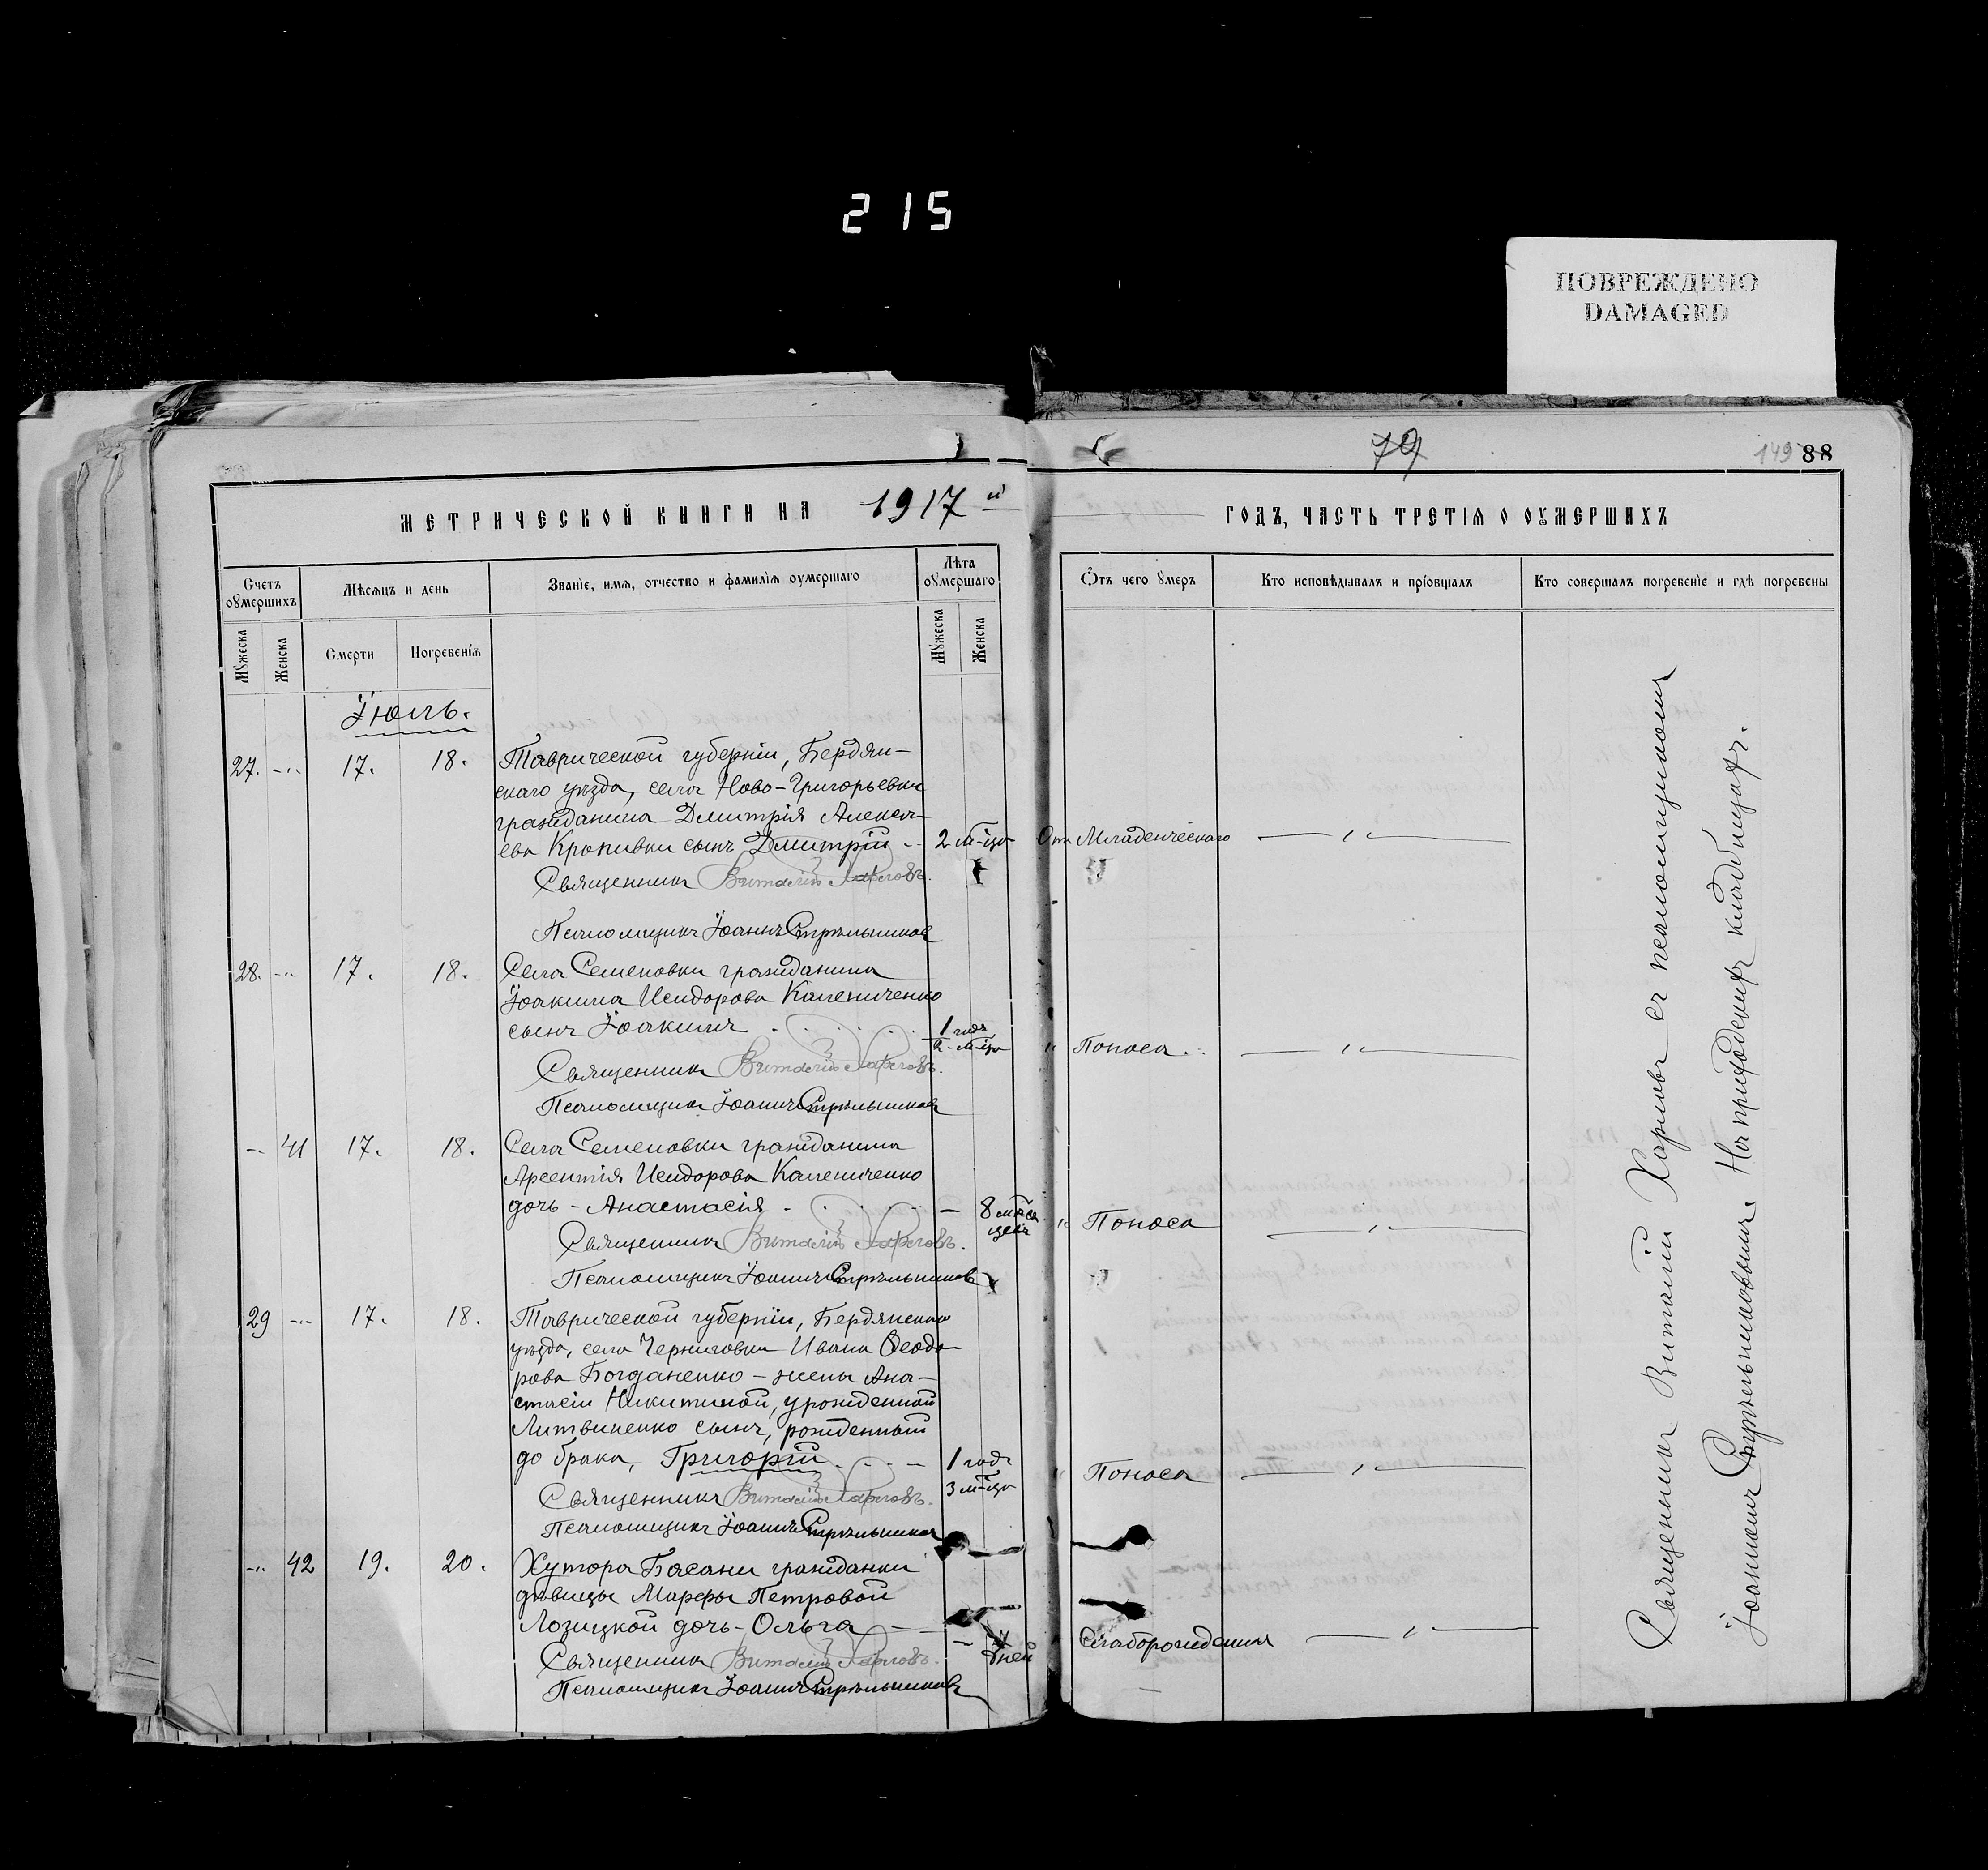 215
ПОВРЕЖДЕНО
DAMAGED
79
149 88
МЕТРИЧЕСКОЙ КНИГИ НА 1917 й
ГОДЪ, ЧАСТЬ ТРЕТІѦ О ОУМЕРШИХЪ
Счетъ оумершихъ
Мѣсѧцъ и день
Званіе, имѧ, отчество и фамиліѧ оумершаго
Лѣта оумершаго
Ѿтъ чего оумеръ
Кто исповѣдывалъ и пріобщалъ
Кто совершалъ погребеніе и гдѣ погребены
Мужеска
Женска
Смерти
Погребеніѧ
Мужеска
Женска
Іюль.
27. -"- 17. 18. Таврической губерніи, Бердян-
скаго уѣзда, села Ново-Григорьевки
гражданина Димитрія Алексѣ-
ева Кропивки сынъ Димитрій - 2 м-ца От Младенческаго — " —
Священникъ Виталій
Псаломщикъ Іоаннъ Стрѣльниковъ
28. -"- 17. 18. Села Семеновки гражданина
Іоакима Исидорова Калениченко
сынъ Іоакимъ . . . . 1 годъ
2 м-ца " Поноса. — " —
Священникъ Виталій
Псаломщикъ Іоаннъ Стрѣльниковъ
-"- 41 17. 18. Села Семеновки гражданина
Арсентія Исидорова Калениченко
дочь - Анастасія - . . . — 8 мѣся
цевъ " Поноса — " —
Священникъ Виталій
Псаломщикъ Іоаннъ Стрѣльниковъ
29 -"- 17. 18. Таврической губерніи, Бердянскаго
уѣзда, села Черниговки Ивана Ѳеодо
рова Богданенко - жены Ана-
стасіи Никитиной, урожденной
Литвиненко сынъ, рожденный
до брака, Григорій . - - 1 годъ
3 м-ца " Поноса — " —
Священникъ Виталій
Псаломщикъ Іоаннъ Стрѣльниковъ
-"- 42 19. 20. Хутора Басани гражданки
дѣвицы Марфы Петровой
Лозицкой дочь - Ольга - — дней Слаборожденія — " —
Священникъ Виталій
Псаломщикъ Іоаннъ Стрѣльниковъ
Священникъ Виталій съ псаломщикомъ
Іоанномъ Стрѣльниковымъ. На приходскомъ кладбищѣ.